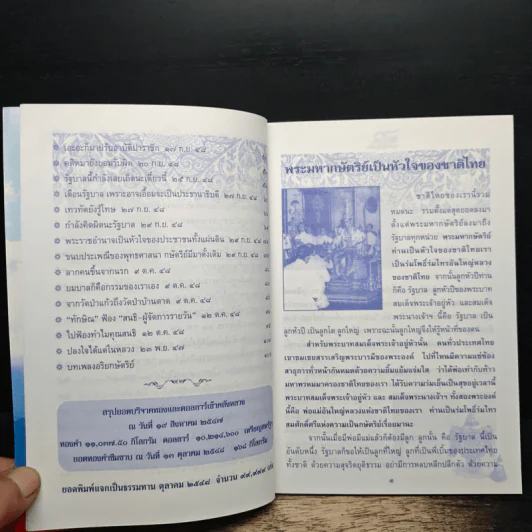 เอะอะก็มาปรับอาบัติปาราชิก ๑๗ ก.ย. ๔๘
อดีตมายังยอมรับผิด ๒๐ ก.ย. ๔๘
รัฐบาลนี้กำลังเลยเถิดนะเดี๋ยวนี้ ๒๕ ก.ย. ๔๘
เตือนรัฐบาล เพราะอาจเอื้อมจะเป็นประธานาธิบดี ๒๗ ก.ย. ๔๘
เทวทัตยังรู้โทษ ๒๗ ก.ย. ๔๘
กำลังคิดผิดนะรัฐบาล ๒๙ ก.ย. ๔๘
พระราชอำนาจเป็นหัวใจของประชาชนทั้งแผ่นดิน ๒๙ ก.ย. ๔๘
ขนบประเพณีของพุทธศาสนา กษัตริย์มีมาดั้งเดิม ๒๙ ก.ย. ๔๘
ลากคนขึ้นจากนรก ๙ ต.ค. ๔๘
ยมบาลก็คือกรรมของเราเอง ๙ ต.ค. ๔๘
จากวัดป่าแก้วถึงวัดป่าบ้านตาด ๙ ต.ค. ๔๘
"ทักษิณ" ฟ้อง "สนธิ-ผู้จัดการรายวัน" ๑๒ ต.ค. ๔๘
ไปฟ้องทำไมคุณสนธิ ๑๒ ต.ค. ๔๘
ปลงใจได้แต่ในหลวง ๒๓ พ.ย. ๔๗
บทเพลงอริยกษัตริย์
สรุปยอดบริจาคทองและดอลลาร์เข้าคลังหลวง
ณ วันที่ ๑๙ สิงหาคม ๒๕๔๗
ทองคำ ๑๑,๐๓๗.๕๐ กิโลกรัม ดอลลาร์ ๑๐,๒๑๔,๖๐๐ เหรียญสหรัฐ
ยอดทองคำซึมซาบ ณ วันที่ ๑๓ ตุลาคม ๒๕๔๘
ยอดพิมพ์แจกเป็นธรรมทาน ตุลาคม ๒๕๔๘ จำนวน ๙๙,๙๙๙ เล่ม
พระมหากษัตริย์เป็นหัวใจของชาติไทย
ชาติไทยของเรานี้รวม
หมดนะ รวมตั้งแต่สุดยอดลงมา
ตั้งแต่พระมหากษัตริย์ลงมาถึง
รัฐบาลทุกหน่วย พระมหากษัตริย์
ท่านเป็นหัวใจของชาติไทยเรา
เป็นร่มโพธิ์ร่มไทรอันใหญ่หลวง
ของชาติไทย จากลูกหัวปีท่าน
ก็คือ รัฐบาล ลูกหัวปีของพระบาท
สมเด็จพระเจ้าอยู่หัว และสมเด็จ
พระนางเจ้าฯ ก็คือ รัฐบาล เป็น
ลูกหัวปี เป็นลูกโต ลูกใหญ่ เพราะฉะนั้นลูกใหญ่จึงให้รู้หน้าที่ของตน
สำหรับพระบาทสมเด็จพระเจ้าอยู่หัวนั้น คนทั่วประเทศไทย
เขาชมเชยสรรเสริญพระบารมีของพระองค์ ไปที่ไหนมีความแซ่ซ้อง
สาธุการทั่วหน้ากันหมดด้วยความยิ้มแย้มแจ่มใส ว่าได้พึ่งเท่ากับท้าว
มหาพรหมมาครองชาติไทยของเรา ได้รับความร่มเย็นเป็นสุขอยู่เวลานี้
พระบาทสมเด็จพระเจ้าอยู่หัว และสมเด็จพระนางเจ้าฯ ทั้งสองพระองค์
นี้คือ พ่อแม่อันใหญ่หลวงแห่งชาติไทยของเรา ท่านเป็นร่มโพธิ์ร่มไทร
สมศักดิ์ศรีแห่งความเป็นกษัตริย์เรื่อยมานะ
จากนั้นเมื่อมีพ่อมีแม่แล้วก็ต้องมีลูก ลูกนั้น คือ รัฐบาล นี่เป็น
อันดับหนึ่ง รัฐบาลก็ขอให้เป็นลูกที่ใหญ่ ลูกที่เป็นพี่เบิ้มของประเทศไทย
ทั้งชาติ ด้วยความสุจริตยุติธรรม อย่ามีการคดบหลีกปลีกตัว ด้วยความ